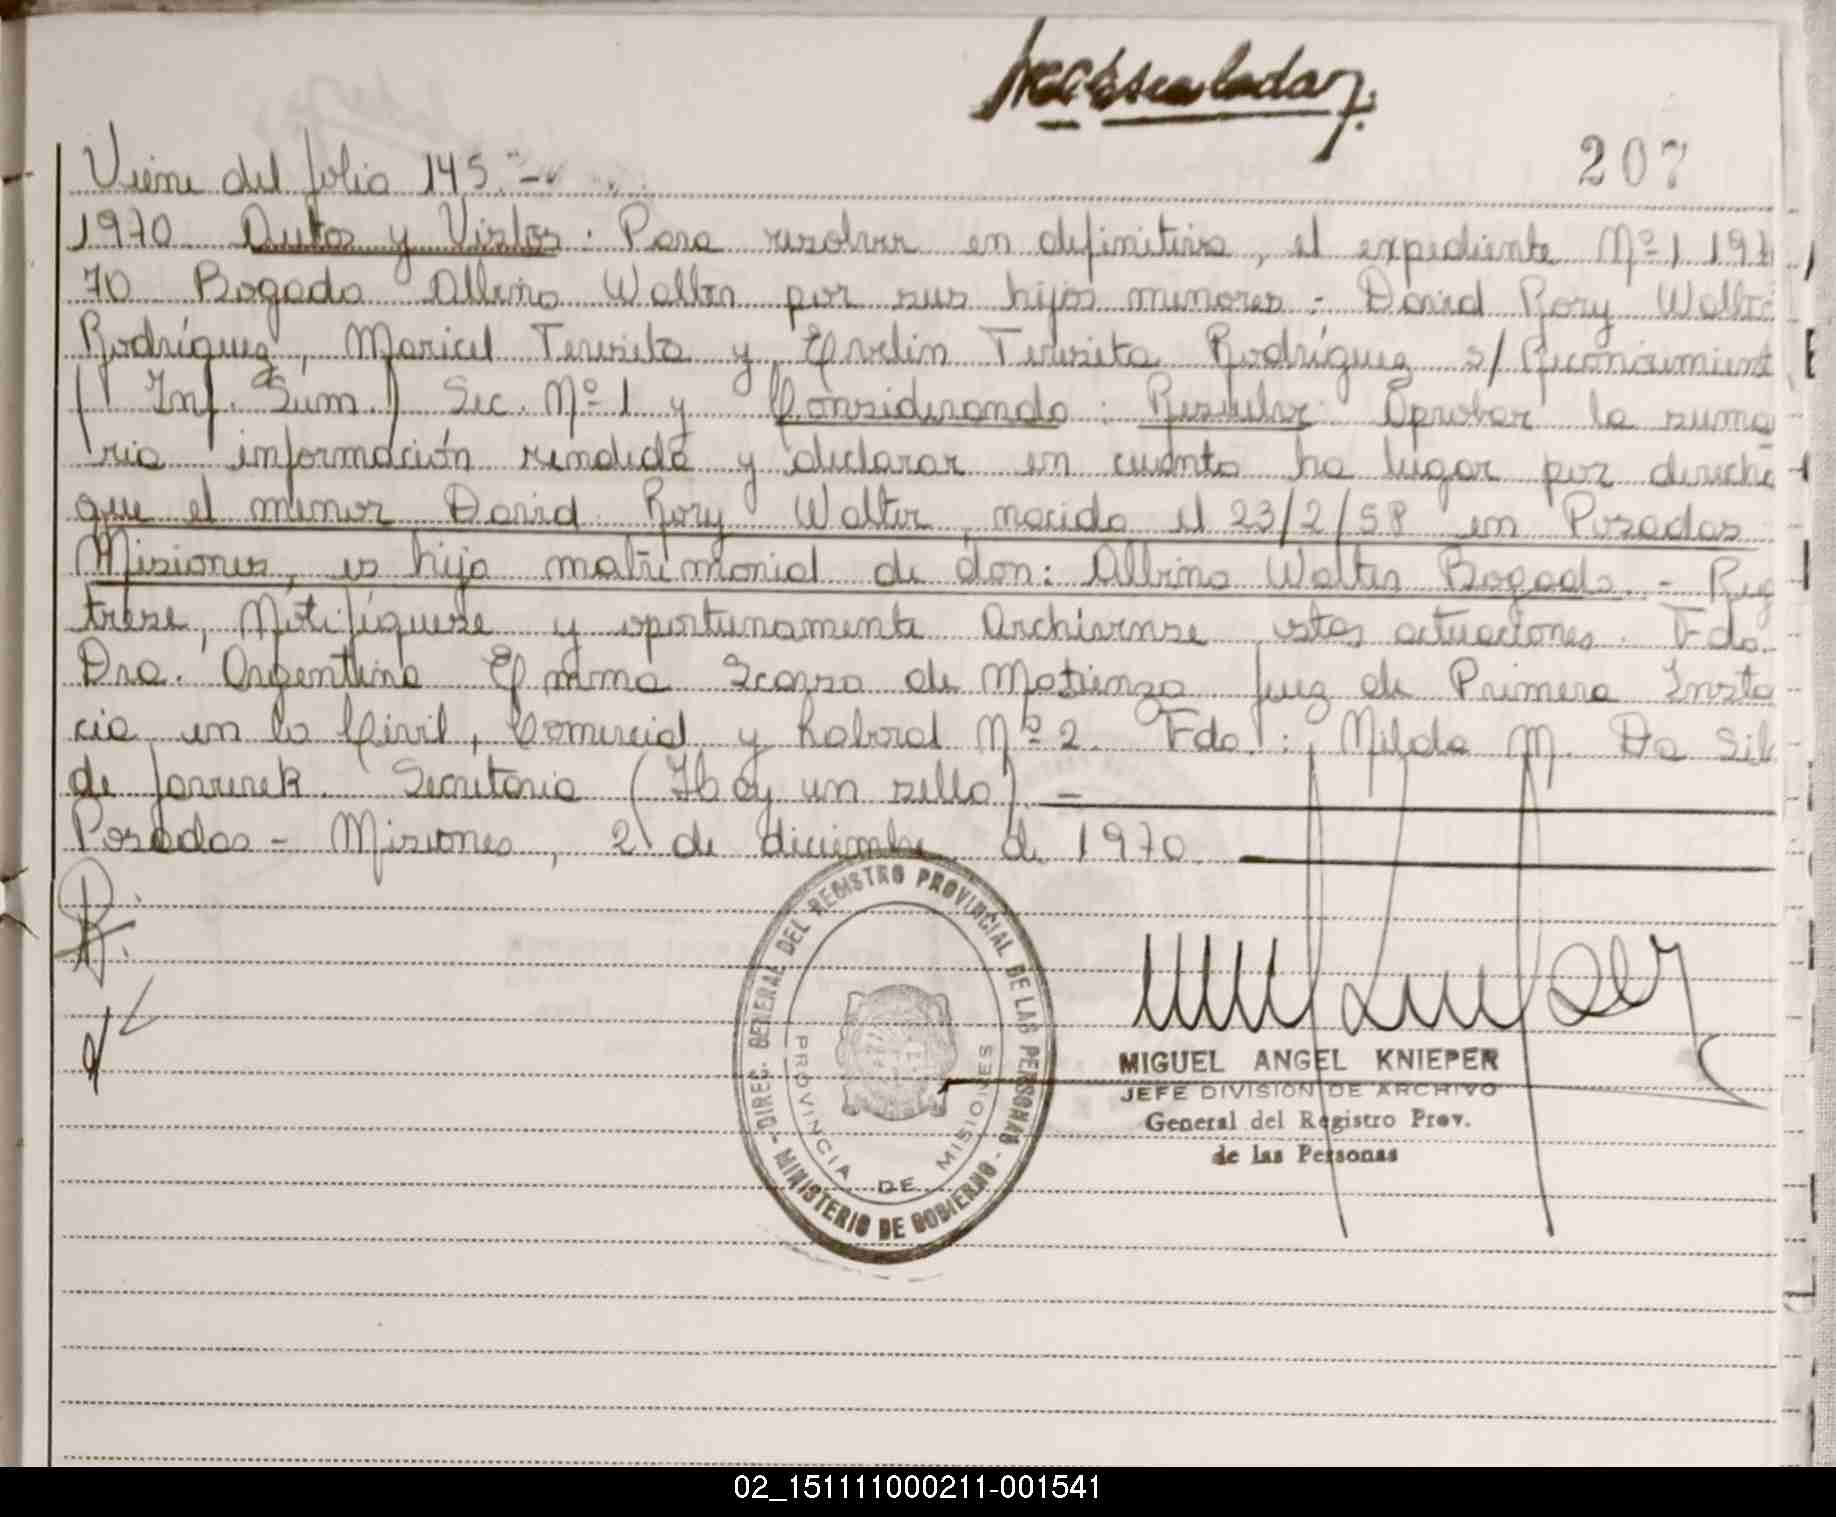 207
Viene del folio 145.-
1970 Autos y Vistos: Para resolver en definitiva, el expediente Nº 1 197
70 Bogado Albino Walter por sus hijos menores: David Rory Walter
Rodríguez, Maricel Teresita y Evelin Teresita Rodríguez s/ Reconocimient
(Inf. Sum.) Sec. Nº 1 y Considerando: Resuelvo: Aprobar la suma
ria información rendida y declarar en cuanto ha lugar por derecho
que el menor David Rory Walter, nacido el 23/2/58 en Posadas
Misiones, es hijo matrimonial de don: Albino Walter Bogado. - Reg
trese, Notifíquese y oportunamente Archívense estas actuaciones. Fdo.
Dra. Argentina Emma de Matienzo Juez de Primera Insta
cia en lo Civil, Comercial y Laboral Nº 2. Fdo.: Nilda M. Da Sil
de Secretaria (Hay un sello). -
Posadas - Misiones, 2 de diciembre de 1970.
DIREC. GENERAL DEL REGISTRO PROVINCIAL DE LAS PERSONAS
- MINISTERIO DE GOBIERNO -
PROVINCIA DE MISIONES
MIGUEL ANGEL KNIEPER
JEFE DIVISION DE ARCHIVO
General del Registro Prov.
de las Personas
02_151111000211-001541